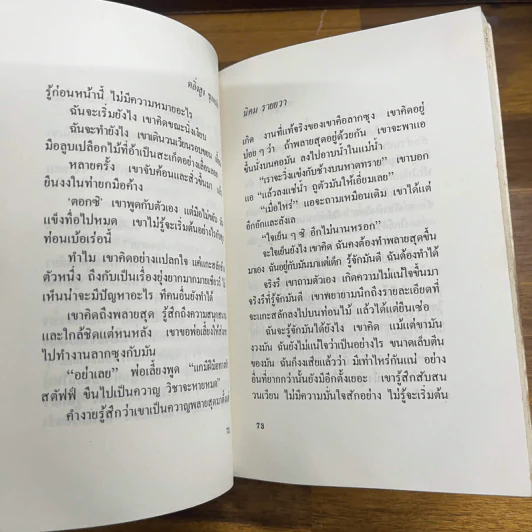 ตลิ่งสูง
รู้ก่อนหน้านี้ ไม่มีความหมายอะไร
ฉันจะเริ่มยังไง เขาคิดขณะนั่งเงียบ
ฉันจะทำยังไง เขาเดินวนเวียนรอบขอน
มือลูบเปลือกไม้ที่อ้าเป็นสะเก็ดอย่างเลื่อนลอย
หลายครั้ง เขาจับค้อนและสิ่วขึ้นมา
ยืนงงในท่ายกมือค้าง
'ตอกซิ' เขาพูดกับตัวเอง แต่มือไม่ขยับ
แข็งทื่อไปหมด เขาไม่รู้จะเริ่มต้นอย่างไรกับ
ท่อนเบ้อเร่อนี้
ทำไม เขาคิดอย่างแปลกใจ แค่แกะสลัก
ตัวหนึ่ง ถึงกับเป็นเรื่องยุ่งยากมากมายเชียว
เห็นน่าจะมีปัญหาอะไร ทีคนอื่นยังทำได้
เขาคิดถึงพลายสุด รู้สึกถึงความสนุกสนาน
และใกล้ชิดแต่หนหลัง เขาขอพ่อเลี้ยงให้
ไปทำงานลากซุงกับมัน
"อย่าเลย" พ่อเลี้ยงพูด "แกมีฝีมือทาง
สตัฟฟ์ ขืนไปเป็นควาญ วิชาจะหายหมด"
คำงายรู้สึกว่าเขาเป็นควาญพลายสุดมา
นิคม รายยวา
เกิด งานที่แท้จริงของเขาคือลากซุง เขาคิดอยู่
บ่อย ๆ ว่า ถ้าพลายสุดอยู่ด้วยกัน เขาจะพาแอ
ขึ้นนั่งบนคอมัน ลงไปอาบน้ำในแม่น้ำ
"เราจะวิ่งแข่งกับช้างบนหาดทราย" เขาบอก
แอ "แล้วลงแช่น้ำ ถูตัวมันให้เอี่ยมเลย"
"เมื่อไหร่" แอจะถามเหมือนเดิม เขาได้แต่
อึกอักและลังเล
"ใจเย็น ๆ ซิ อีกไม่นานหรอก"
จะใจเย็นยังไง เขาคิด ฉันคงต้องทำพลายสุดขึ้น
มาเอง ฉันอยู่กับมันมาแต่เด็ก รู้จักมันดี ฉันต้องทำได้
จริงรึ เขาถามตัวเอง เกิดความไม่แน่ใจขึ้นมา
จริงรึที่รู้จักมันดี เขาพยายามนึกถึงรายละเอียดที่
จะแกะสลักลงไปบนท่อนไม้ แล้วได้แต่ยืนเซ่อ
ฉันจะรู้จักมันได้ยังไง เขาคิด แม้แต่ขามัน
งวงมัน ฉันยังไม่แน่ใจว่าเป็นอย่างไร ขนาดเล็บตีน
ของมัน ฉันก็งงเสียแล้วว่า มีเท่าไหร่กันแน่ อย่าง
อื่นที่ยากกว่านั้นยังมีอีกตั้งเยอะ เขารู้สึกสับสน
วนเวียน ไม่มีความมั่นใจสักอย่าง ไม่รู้จะเริ่มต้น
73